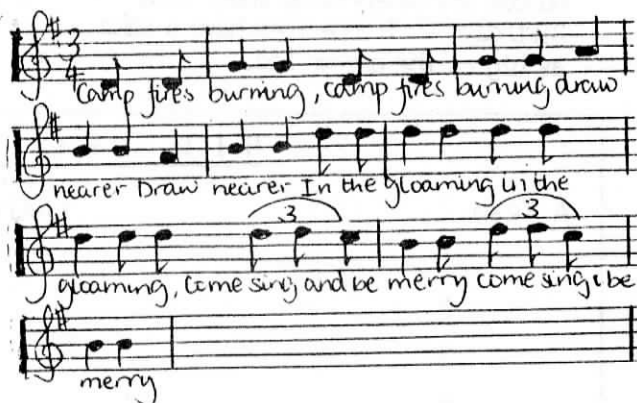 3
4
camp fires burning, camp fires burning draw
nearer Draw nearer In the gloaming in the
3 3
gloaming, come sing and be merry come sing & be
merry